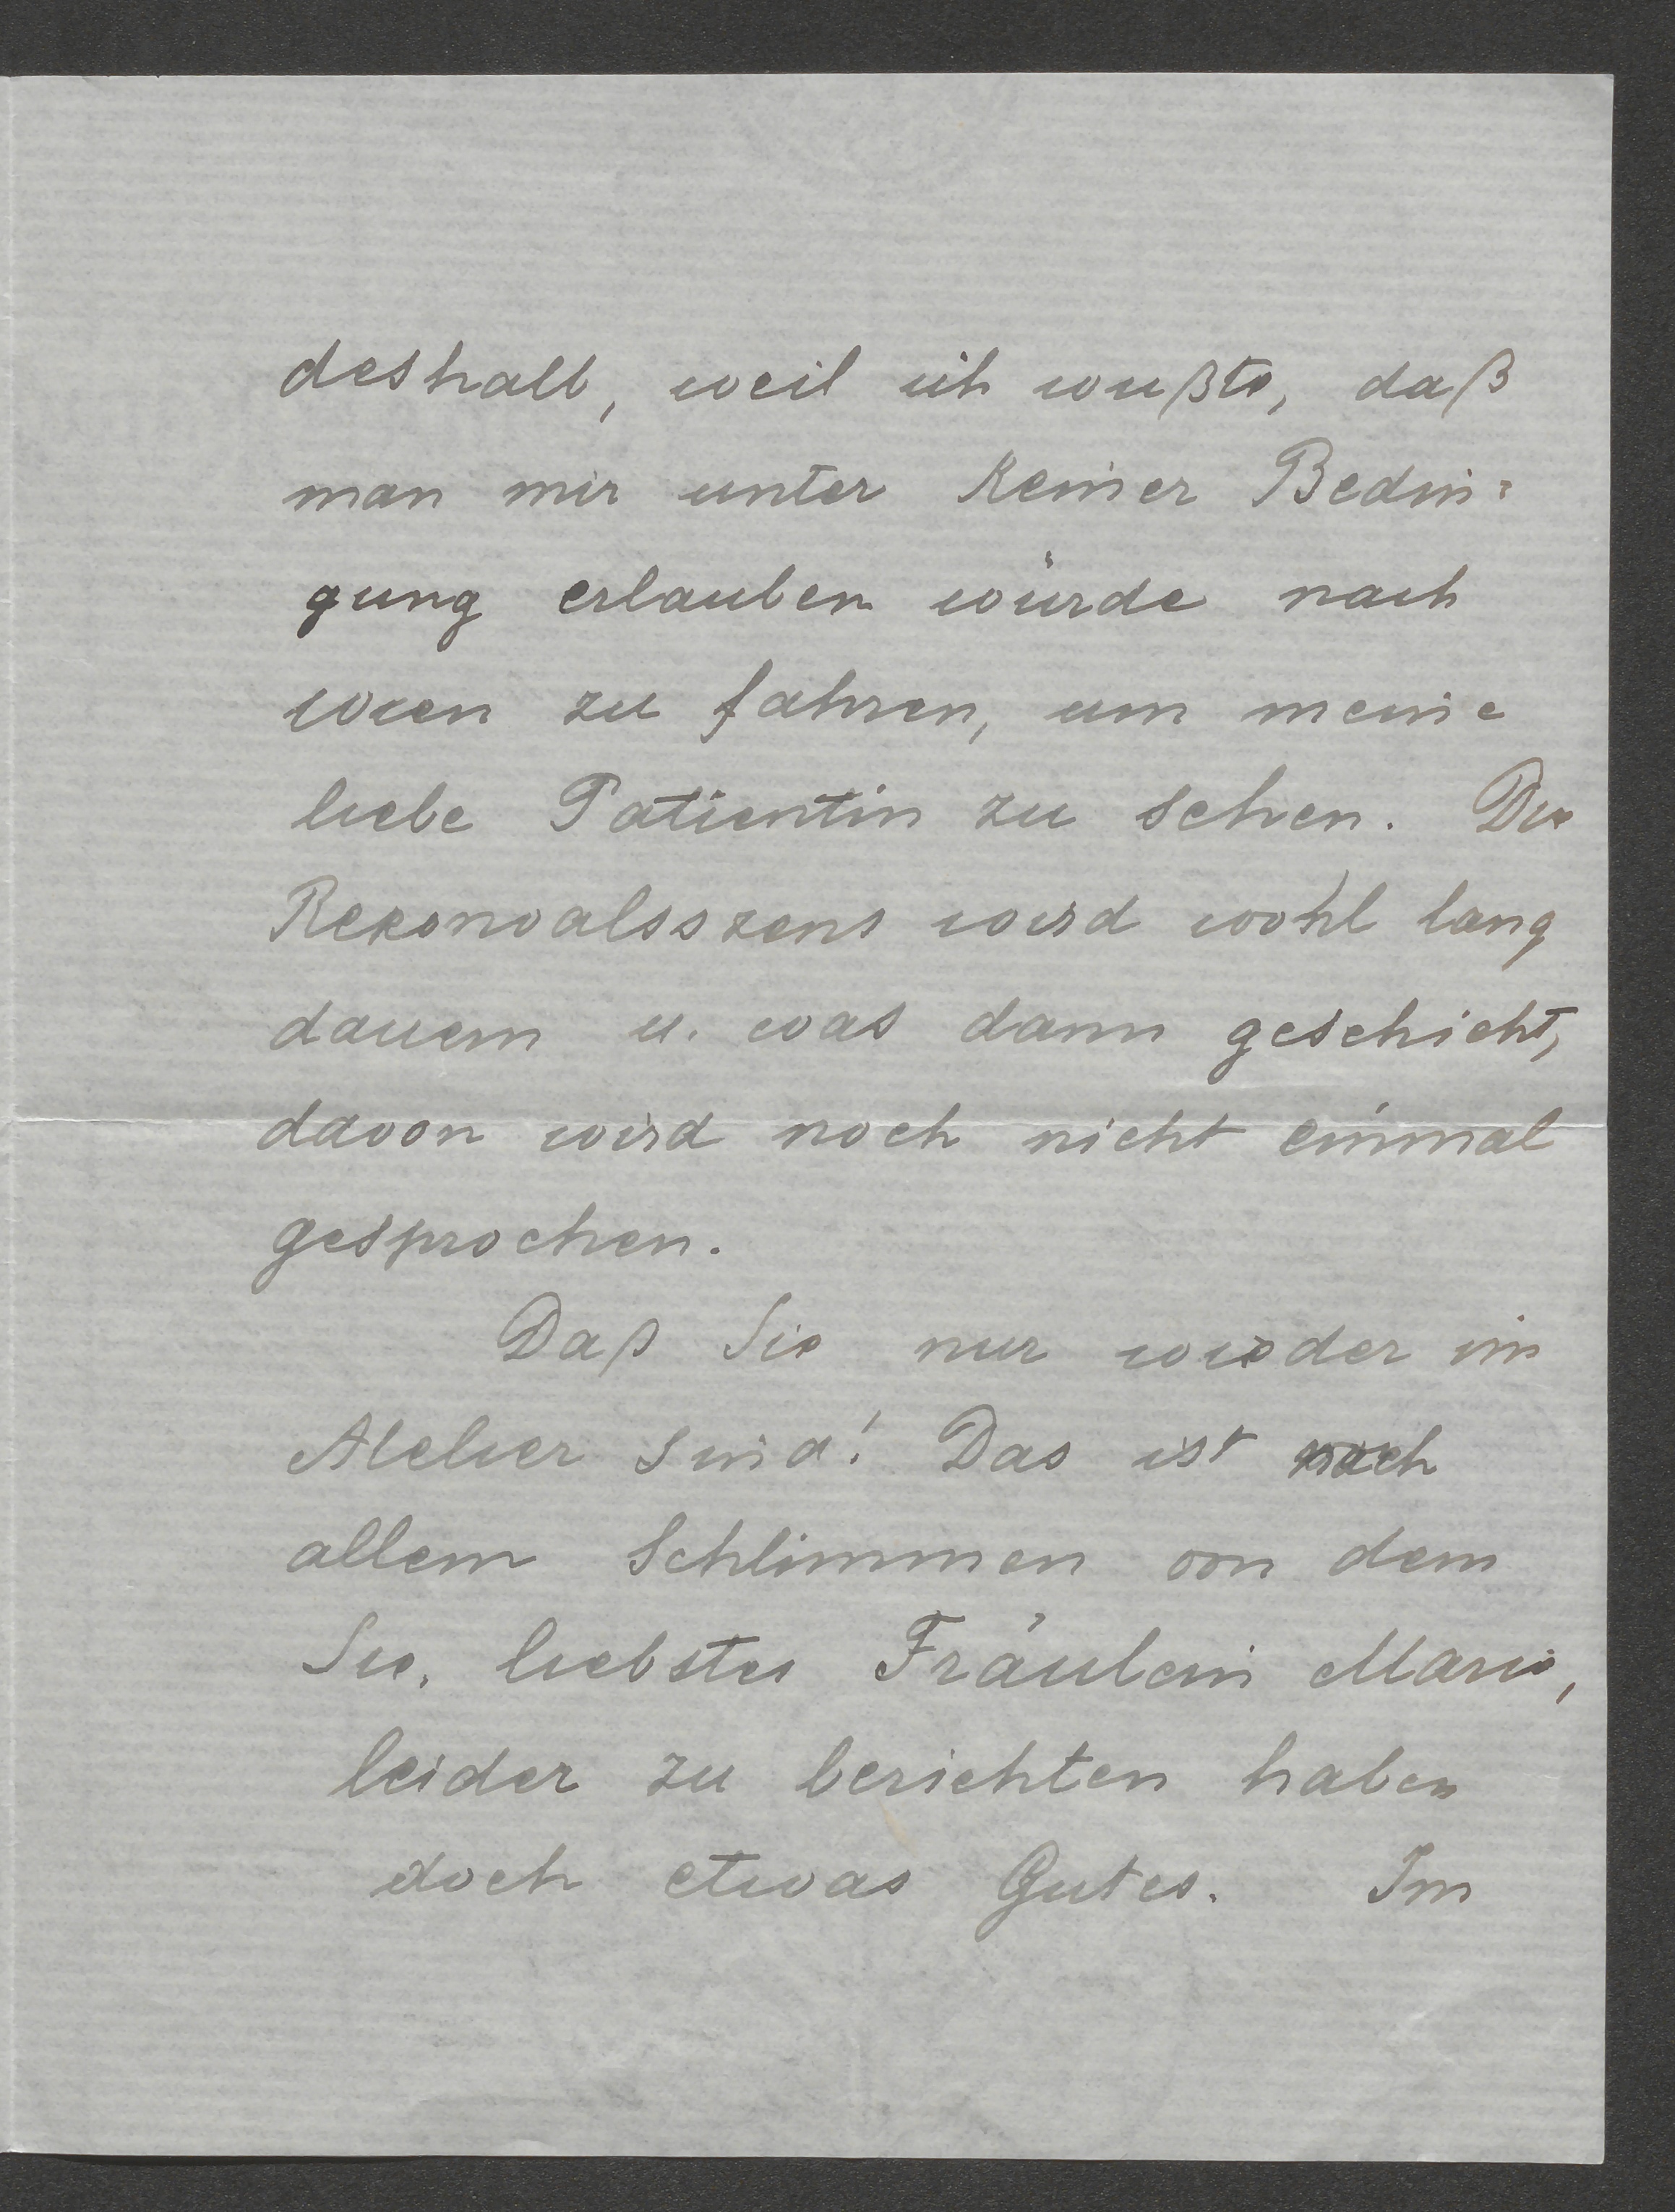 deshalb, weil ich wußte, daß
man mir unter keiner Bedin=
gung erlauben würde nach
Wien zu fahren, um meine
liebe Patientin zu sehen. Die
Rekonvalsszens wird wohl lang
dauern u. was dann geschieht,
davon wird noch nicht einmal
gesprochen.
Daß Sie nur wieder im
Atelier sind! Das ist nach
allem Schlimmen von dem
Sie, liebstes Fräulein Marie,
leider zu berichten haben
doch etwas Gutes. Im